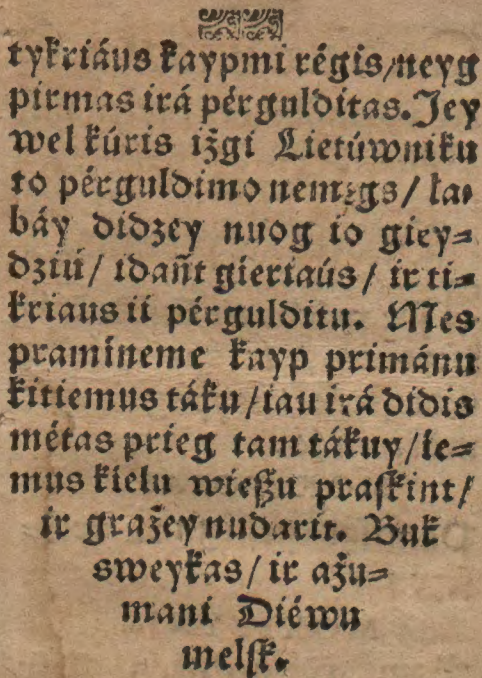 tykriáus kaypmi régis/neyg
pirmas irá pérgulditas. Jey
wel kúris iżgi Lietúwniku
to pérguldimo nemegs/ la⸗
báy didzey nuog io giey⸗
dziú/ idañt gieriaús/ ir ti⸗
kriaus ii pérgulditu. Mes
pramíneme kayp primánu
kitiemus táku/iau irá didis
métas prieg tam tákuy/ie⸗
mus kielu wießu praſkint/
ir grażey nudarit. Buk
sweykas/ ir ażu⸗
mani Diéwu
melſk.